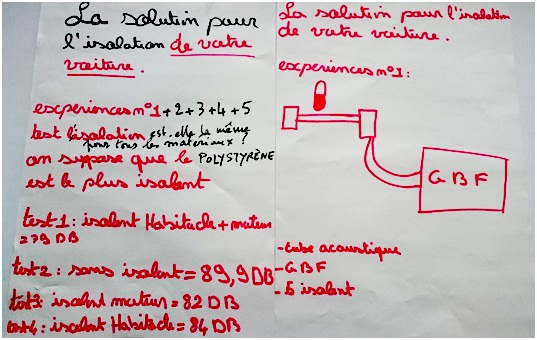 La solution pour
l'isolation de votre
voiture.
experiences n°1 + 2 + 3 + 4 + 5
test l'isolation est-elle la même
pour tous les materiaux ?
on suppose que le POLYSTYRÈNE
est le plus isolant
test 1 : isolant Habitacle + moteur
= 79 DB
test 2 : sans isolant = 89,9 DB
test 3 : isolant moteur = 82 DB
test 4 : isolant Habitacle = 84 DB
La solution pour l'isolation
de votre voiture.
experiences n°1 :
GBF
- cube acoustique
- GBF
- 5 isolant